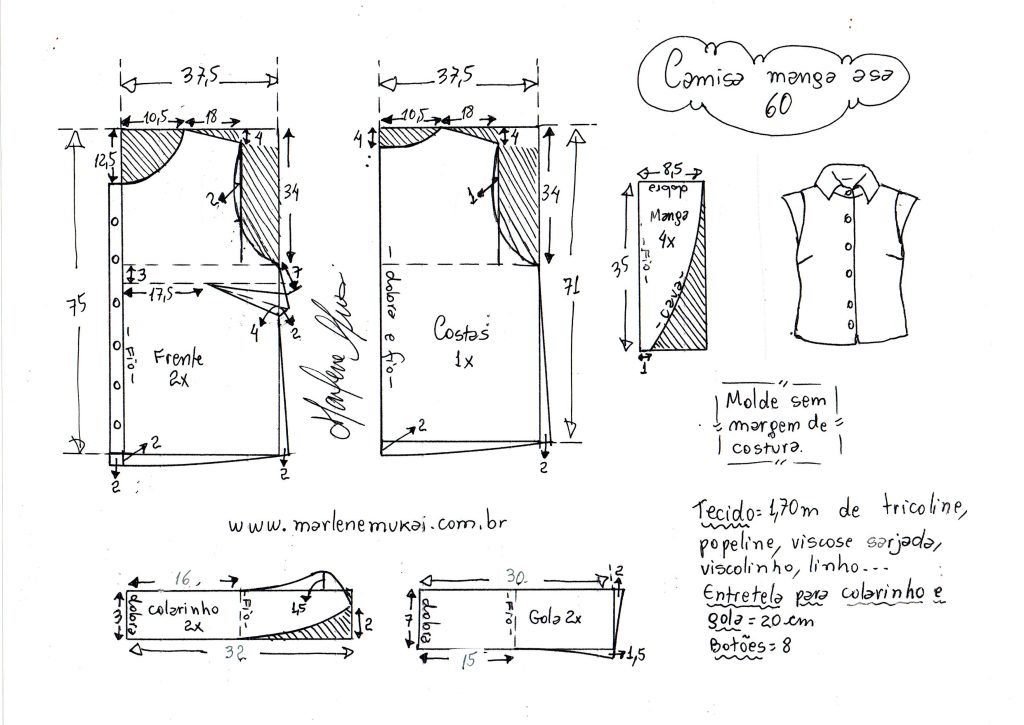 Camisa manga asa
60
37,5
10,5
18
12,5
4
2
34
3
17,5
7
4
2
75
Fio
Frente
2x
2
2
2
Marlene Mukai
37,5
10,5
18
4
4
1
34
71
dobra e fio
Costas
1x
2
2
8,5
dobra
Manga
4x
Fio
cava
35
1
Molde sem
margem de
costura.
www.marlenemukai.com.br
Tecido = 1,70m de tricoline,
popeline, viscose sarjada,
viscolinho, linho...
Entretela para colarinho e
gola = 20 cm
Botões = 8
16
3
dobra
colarinho
2x
Fio
1,5
2
32
30
2
7
dobra
Fio
Gola 2x
15
1,5